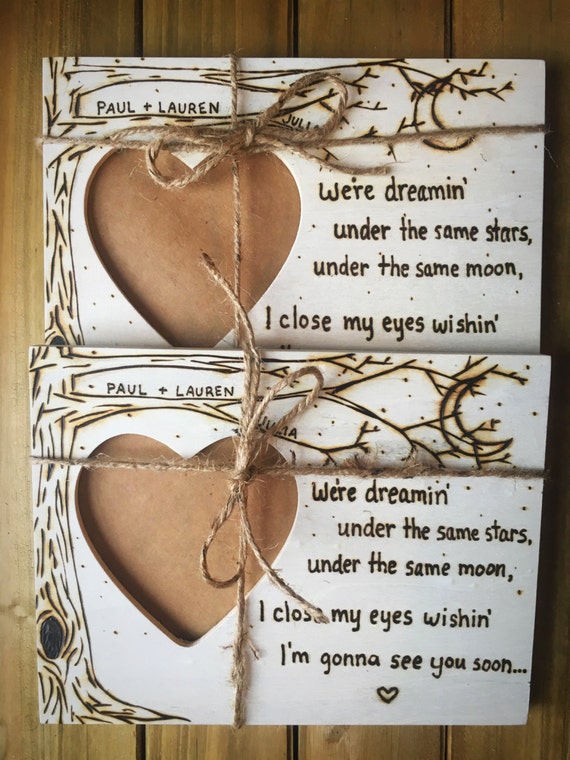 PAUL + LAUREN
JULIA
We're dreamin'
under the same stars,
under the same moon,
I close my eyes wishin'
PAUL + LAUREN
JULIA
We're dreamin'
under the same stars,
under the same moon,
I close my eyes wishin'
I'm gonna see you soon...